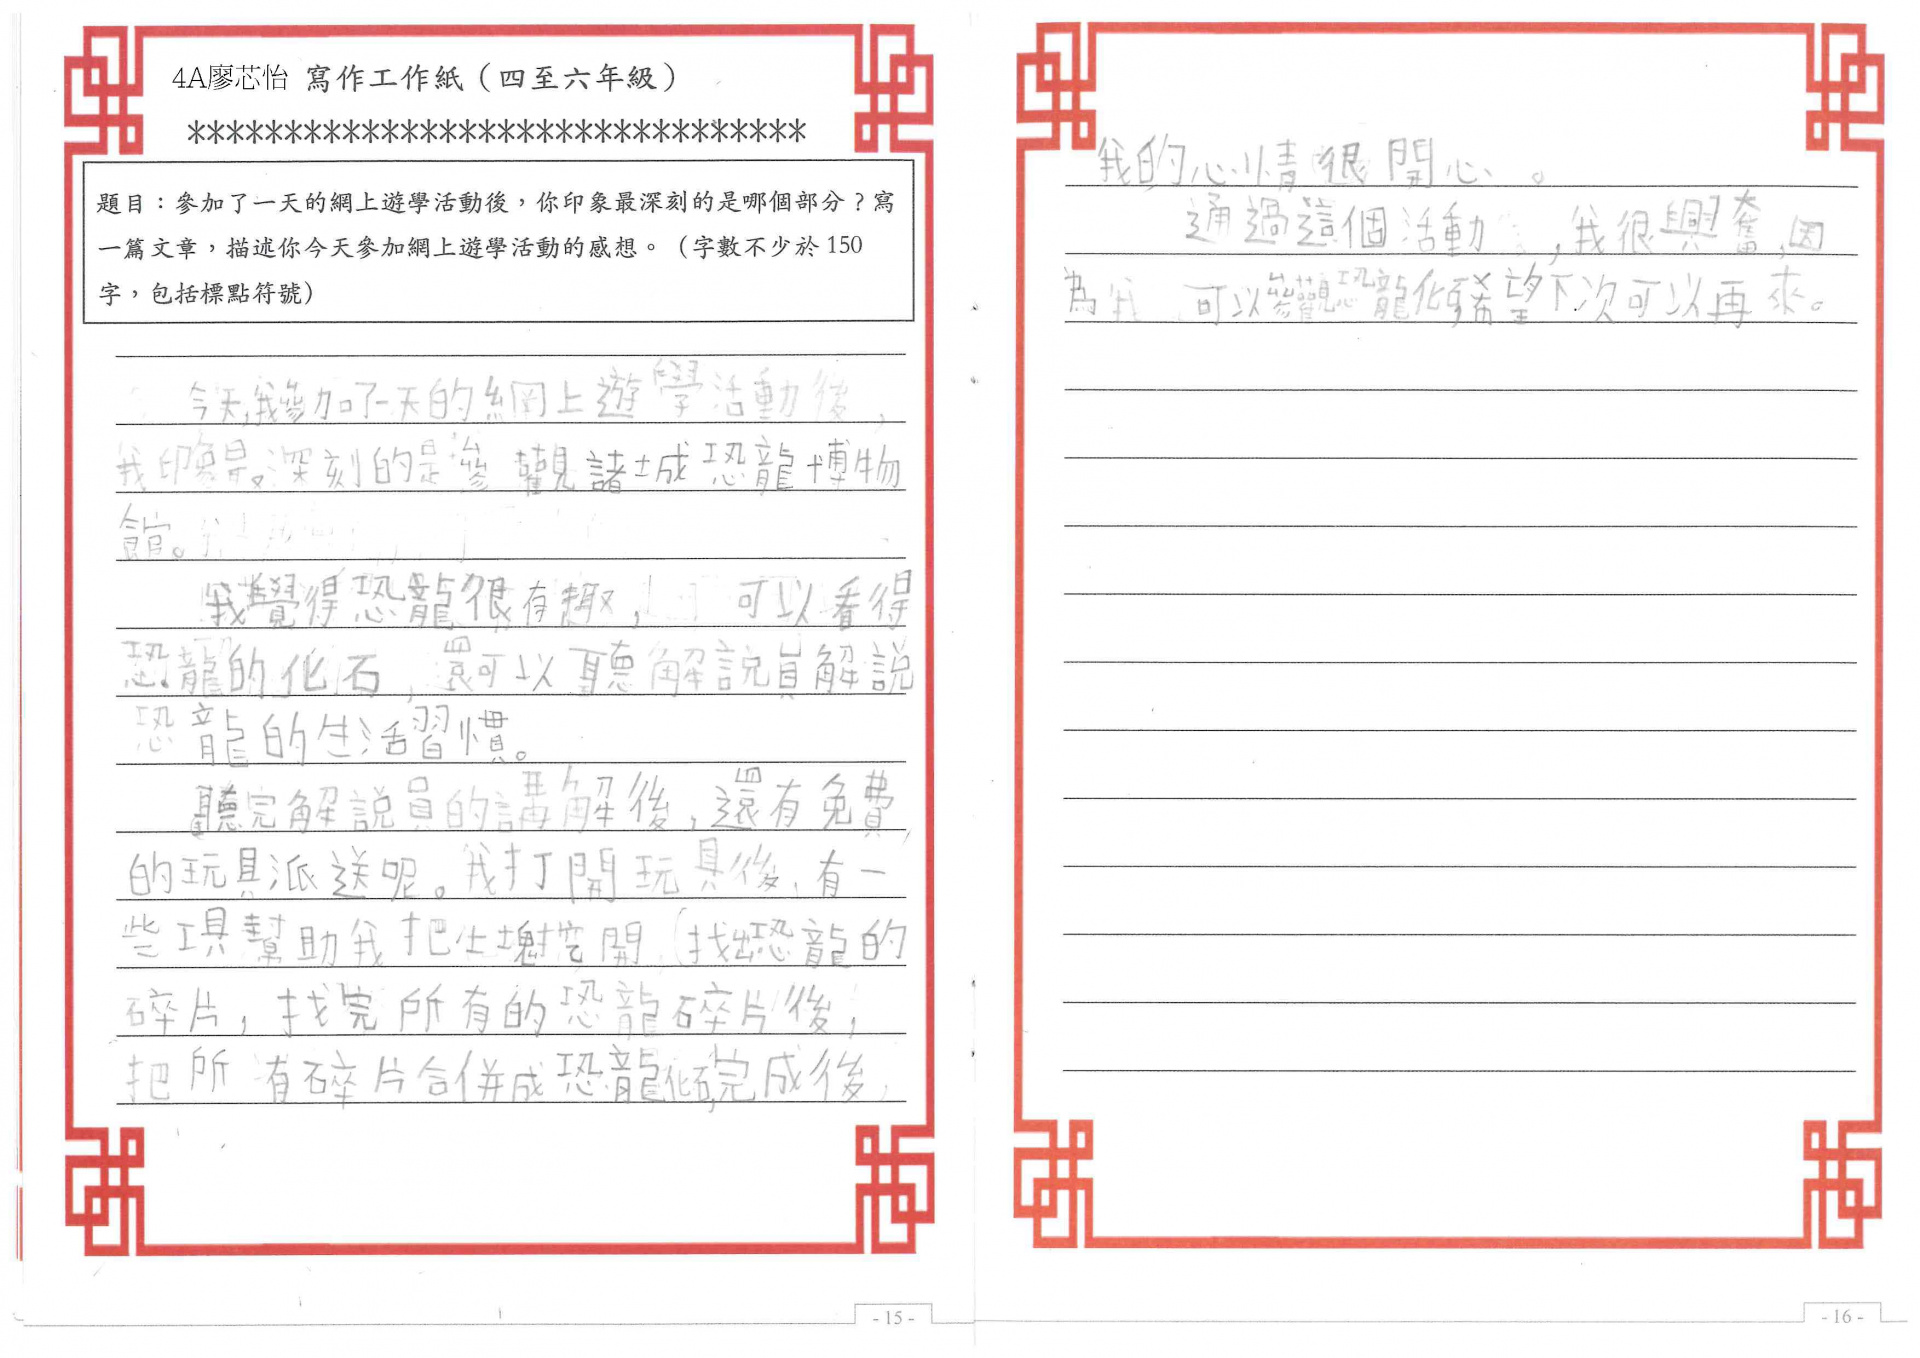 4A廖芯怡 寫作工作紙（四至六年級）
********************************
題目：參加了一天的網上遊學活動後，你印象最深刻的是哪個部分？寫
一篇文章，描述你今天參加網上遊學活動的感想。（字數不少於150
字，包括標點符號）
今天,我參加了一天的網上遊學活動後，
我印象最深刻的是參觀諸城恐龍博物
館。
我覺得恐龍很有趣，可以看得
恐龍的化石，還可以聽解說員解說
恐龍的生活習慣。
聽完解說員的講解後，還有免費
的玩具派送呢。我打開玩具後，有一
些工具幫助我把土塊挖開，找出恐龍的
碎片，找完所有的恐龍碎片後，
把所有碎片合併成恐龍化石,完成後，
- 15 -
我的心情很開心。
通過這個活動，我很興奮，因
為我可以參觀恐龍化石,希望下次可以再來。
- 16 -